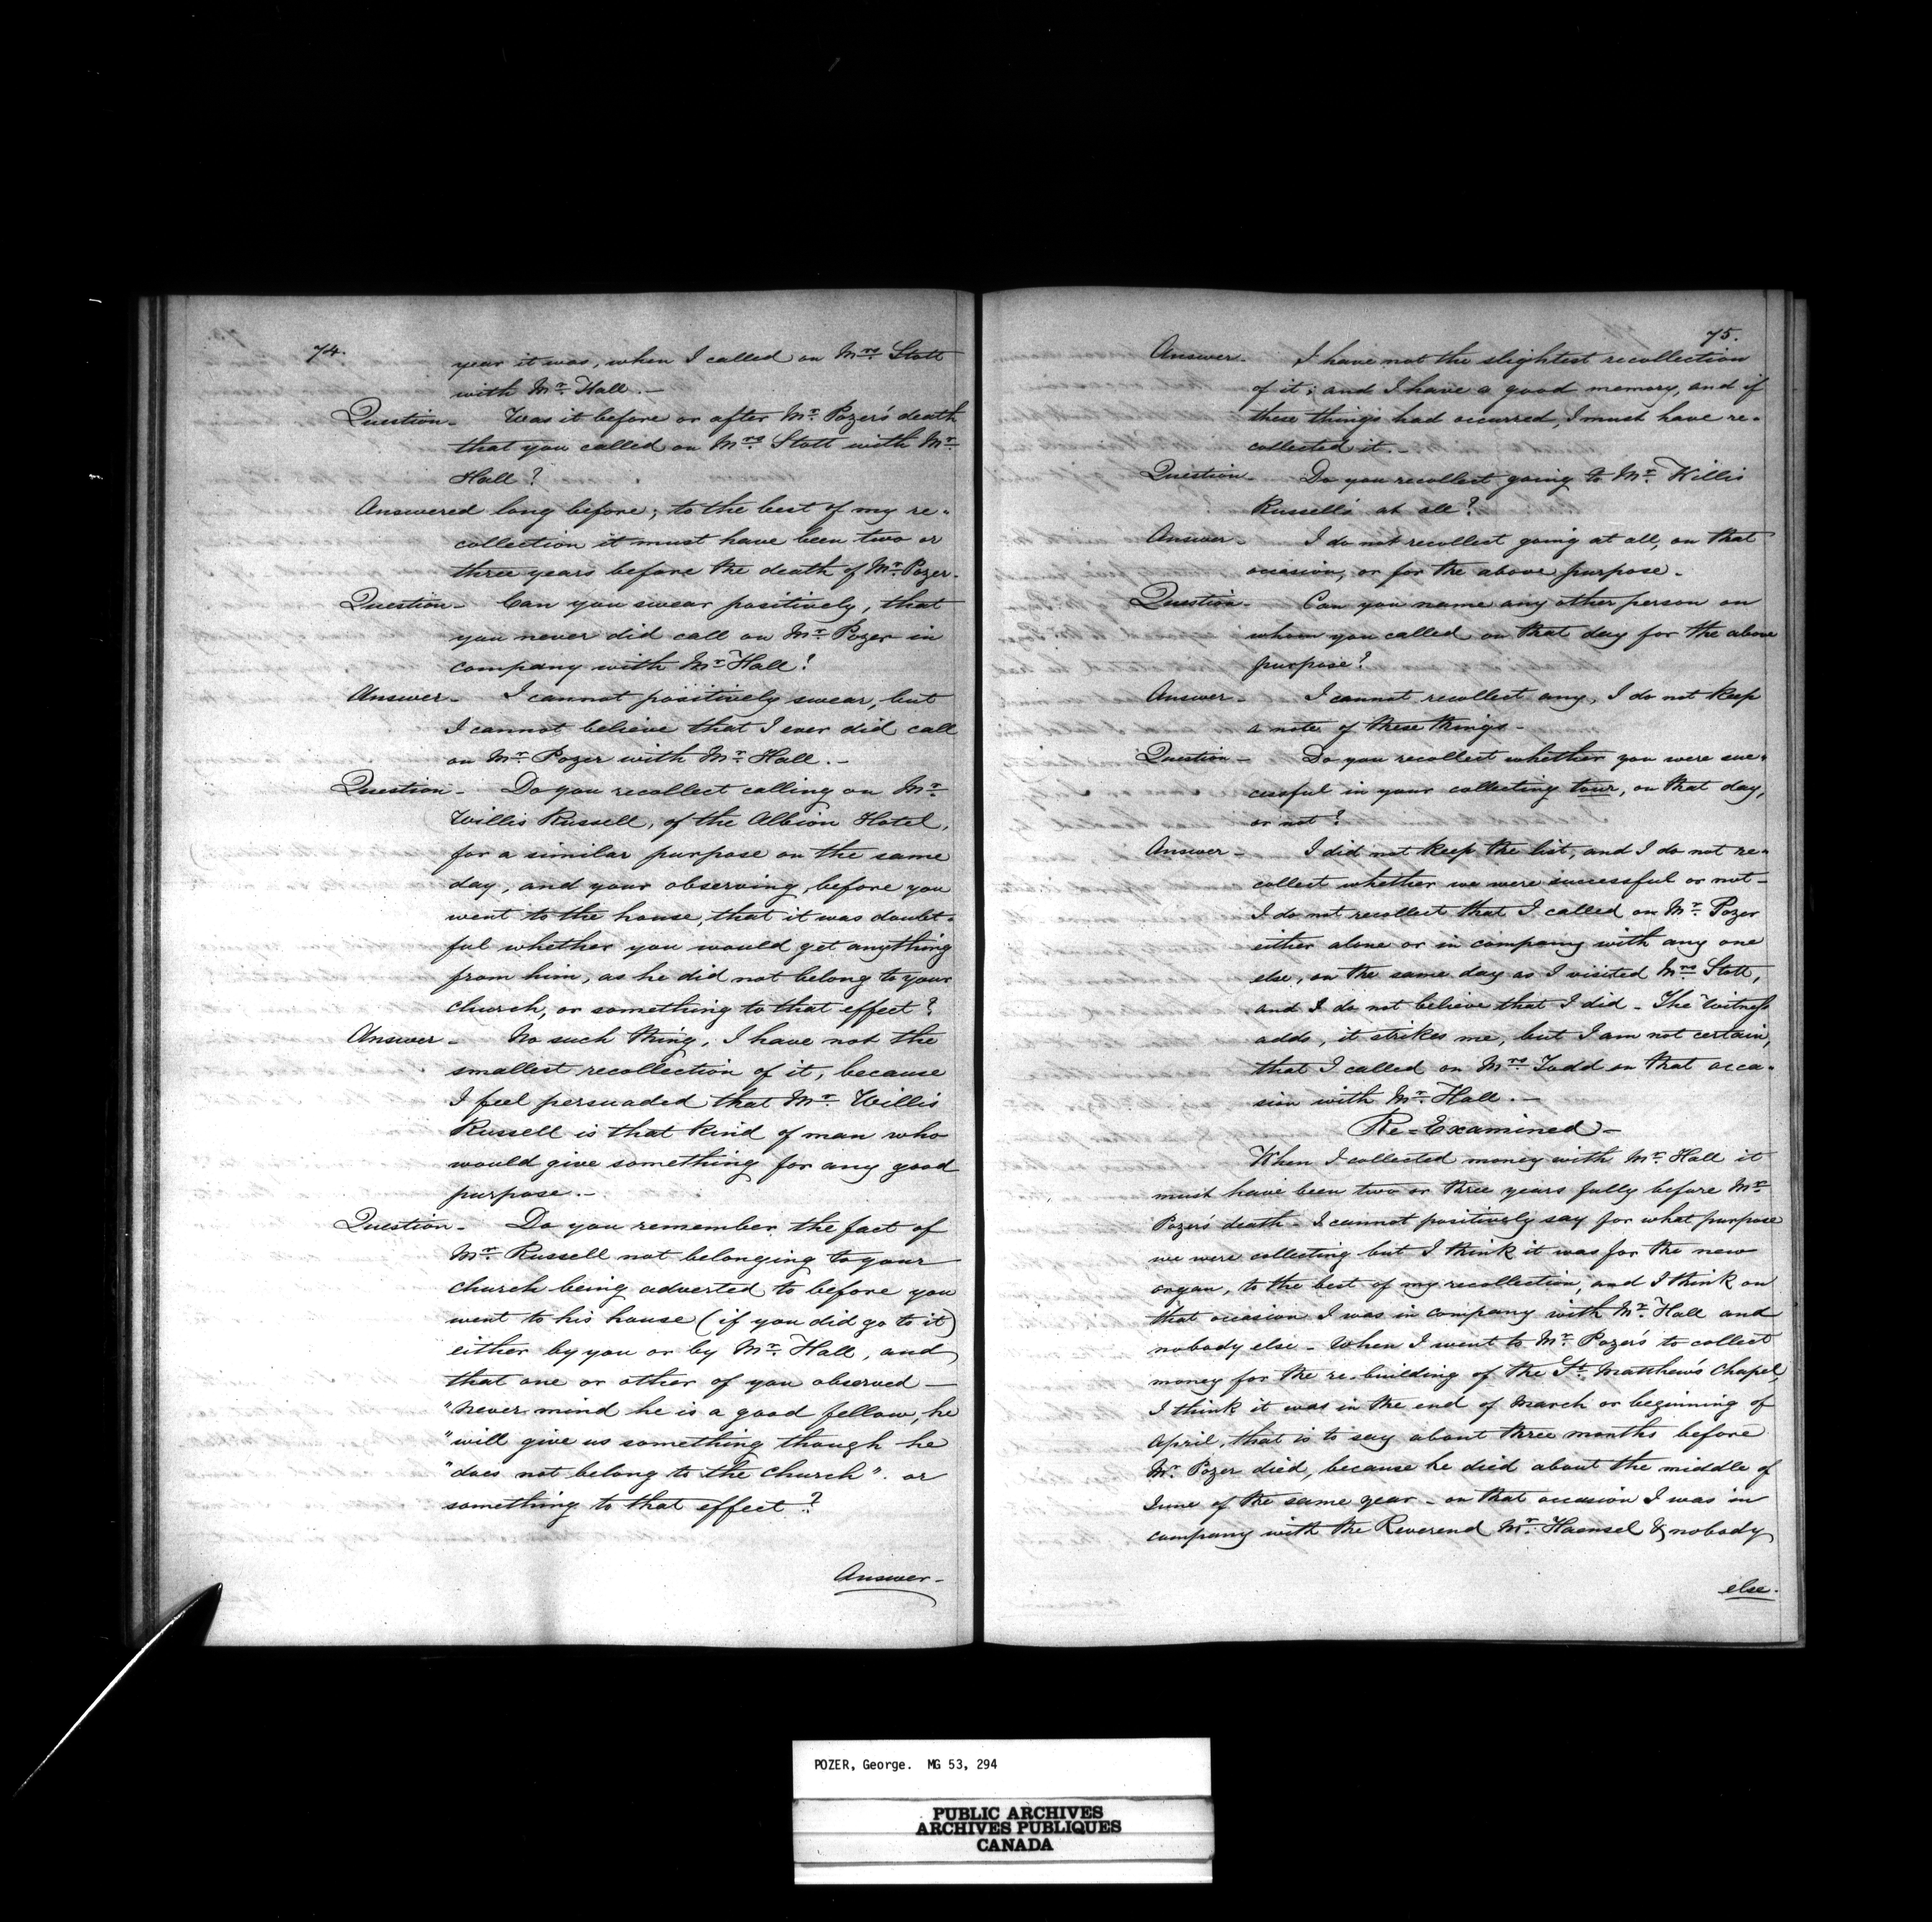 74.
year it was, when I called on Mrs Stott
with Mr. Hall. –
Question – Was it before or after Mr. Pozer's death
that you called on Mrs Stott with Mr.
Hall?
Answered long before; to the best of my re-
collection it must have been two or
three years before the death of Mr. Pozer.
Question – Can you swear positively, that
you never did call on Mr. Pozer in
company with Mr. Hall?
Answer – I cannot positively swear, but
I cannot believe that I ever did call
on Mr. Pozer with Mr. Hall. –
Question – Do you recollect calling on Mr.
Willis Russell, of the Albion Hotel,
for a similar purpose on the same
day, and your observing, before you
went to the house, that it was doubt-
ful whether you would get anything
from him, as he did not belong to your
church, or something to that effect?
Answer – No such thing, I have not the
smallest recollection of it, because
I feel persuaded that Mr. Willis
Russell is that kind of man who
would give something for any good
purpose. –
Question – Do you remember the fact of
Mr. Russell not belonging to your
church being adverted to before you
went to his house (if you did go to it)
either by you or by Mr. Hall, and
that one or other of you observed —
"never mind he is a good fellow, he
"will give us something though he
"does not belong to the church". or
something to that effect?
Answer –
75.
Answer – I have not the slightest recollection
of it; and I have a good memory, and if
these things had occurred, I must have re-
collected it. –
Question – Do you recollect going to Mr. Willis
Russell's at all?
Answer – I do not recollect going at all, on that
occasion, or for the above purpose –
Question – Can you name any other person on
whom you called on that day for the above
purpose?
Answer – I cannot recollect any, I do not keep
a note of these things –
Question – Do you recollect whether you were suc-
cessful in your collecting tour, on that day,
or not?
Answer – I did not keep the list, and I do not re-
collect whether we were successful or not –
I do not recollect that I called on Mr. Pozer
either alone or in company with any one
else, on the same day as I visited Mrs Stott,
and I do not believe that I did – The Witness
adds, it strikes me, but I am not certain,
that I called on Mrs Todd on that occa-
sion with Mr. Hall. –
Re-Examined –
When I collected money with Mr. Hall it
must have been two or three years fully before Mr.
Pozer's death – I cannot positively say for what purpose
we were collecting but I think it was for the new
organ, to the best of my recollection, and I think on
that occasion I was in company with Mr. Hall and
nobody else – When I went to Mr. Pozer's to collect
money for the re-building of the St. Matthew's Chapel,
I think it was in the end of March or beginning of
April, that is to say about three months before
Mr. Pozer died, because he died about the middle of
June of the same year – on that occasion I was in
company with the Reverend Mr. Haensel & nobody
else.
POZER, George. MG 53, 294
PUBLIC ARCHIVES
ARCHIVES PUBLIQUES
CANADA